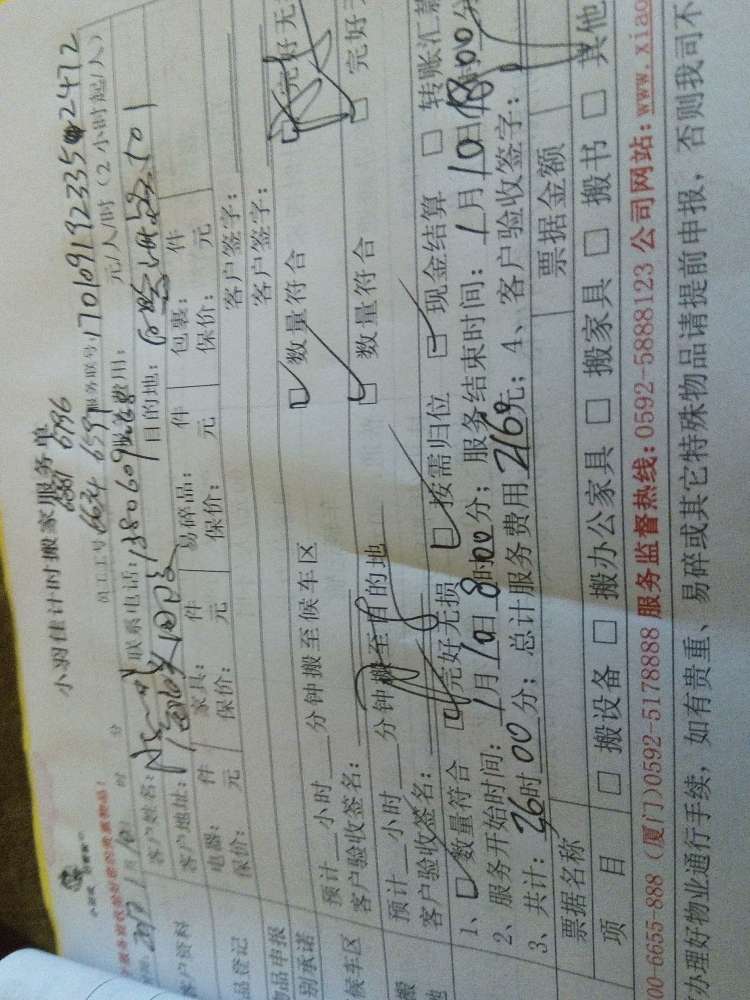 小羽佳计时搬家服务单
员工工号
服务联号: 17010919233502472
元/人/时 (2小时起/人)
客户姓名: 联系电话: 1380609 服务费用:
客户地址: 目的地: 501
客户资料
电器: 件 家具: 件 易碎品: 件 包裹: 件
保价: 元 保价: 元 保价: 元 保价: 元
品登记 客户签字:
物品申报 客户签字:
别承诺
预计 小时 分钟搬至候车区 数量符合 完好无
候车区 客户验收签名:
预计 小时 分钟搬至目的地 数量符合 完好
搬 客户验收签名:
地 1、数量符合 完好无损 按需归位 现金结算 转账汇款
2、服务开始时间: 1月10日8时00分; 服务结束时间: 1月10日18时00分
3、共计: 36时00分; 总计服务费用2160元; 4、客户验收签字:
票据名称 票据金额
项目 搬设备 搬办公家具 搬家具 搬书 其他
00-6655-888 (厦门)0592-5178888 服务监督热线: 0592-5888123 公司网站: www.xiao
办理好物业通行手续, 如有贵重、易碎或其它特殊物品请提前申报, 否则我司不